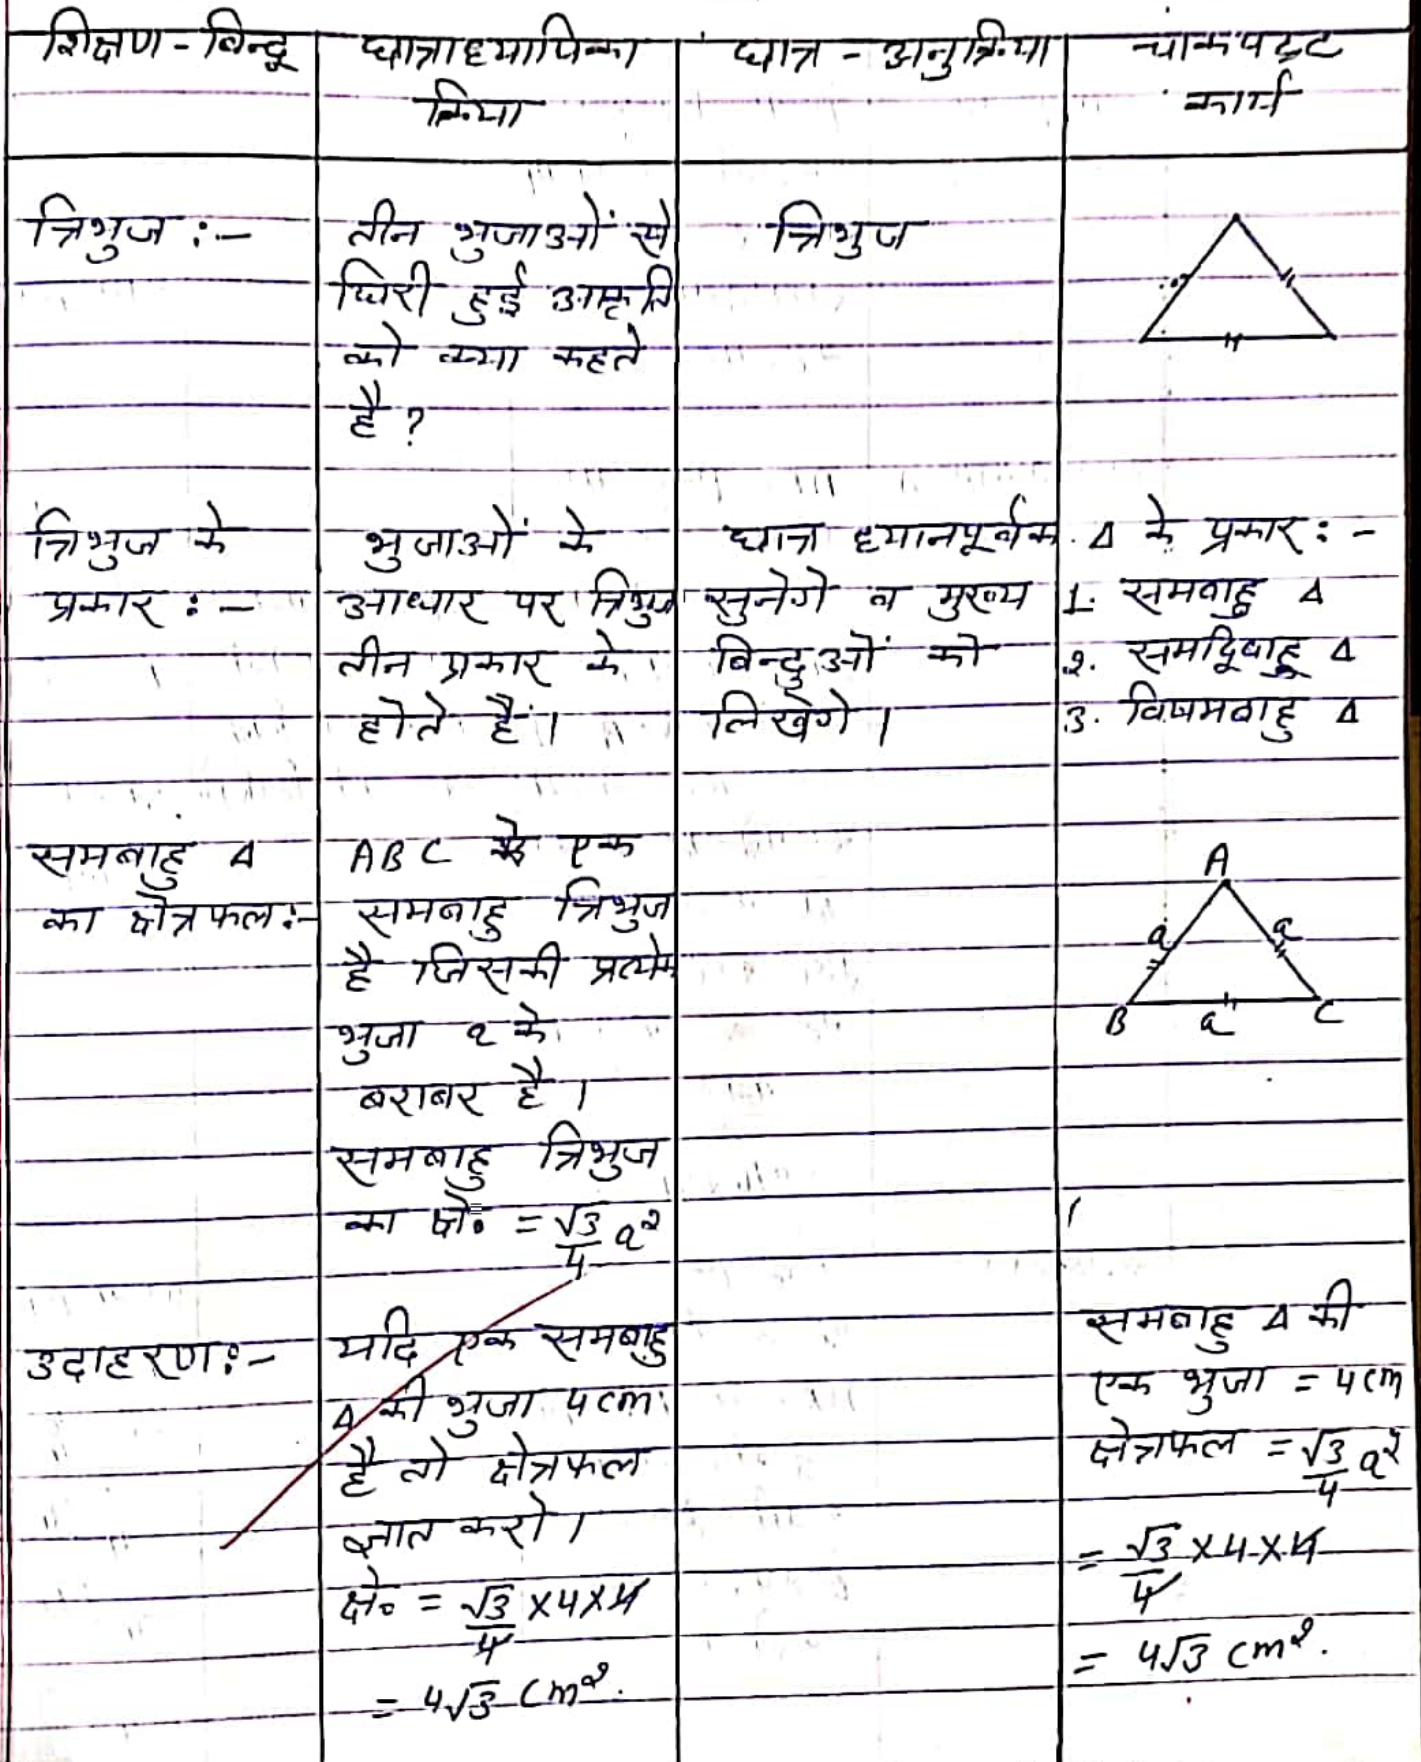 शिक्षण - बिन्दू
छात्राध्यापिका
क्रिया
छात्र - अनुक्रिया
चाकपट्ट
कार्य
त्रिभुज :-
तीन भुजाओं से
घिरी हुई आकृति
को क्या कहते
है ?
त्रिभुज
त्रिभुज के
प्रकार :-
भुजाओं के
आधार पर त्रिभुज
तीन प्रकार के
होते है।
छात्र ध्यानपूर्वक
सुनेगे व मुख्य
बिन्दुओं को
लिखेगे।
Δ के प्रकार :-
1. समबाहु Δ
2. समद्विबाहु Δ
3. विषमबाहु Δ
समबाहु Δ
का क्षेत्रफल :-
ABC एक
समबाहु त्रिभुज
है जिसकी प्रत्येक
भुजा a के
बराबर है।
समबाहु त्रिभुज
का क्षे॰ = √3/4 a²
A
a a
B a C
उदाहरण :-
यदि एक समबाहु
Δ की भुजा 4cm
है तो क्षेत्रफल
ज्ञात करो।
क्षे॰ = √3/4 × 4 × 4
= 4√3 cm².
समबाहु Δ की
एक भुजा = 4cm
क्षेत्रफल = √3/4 a²
= √3/4 × 4 × 4
= 4√3 cm².